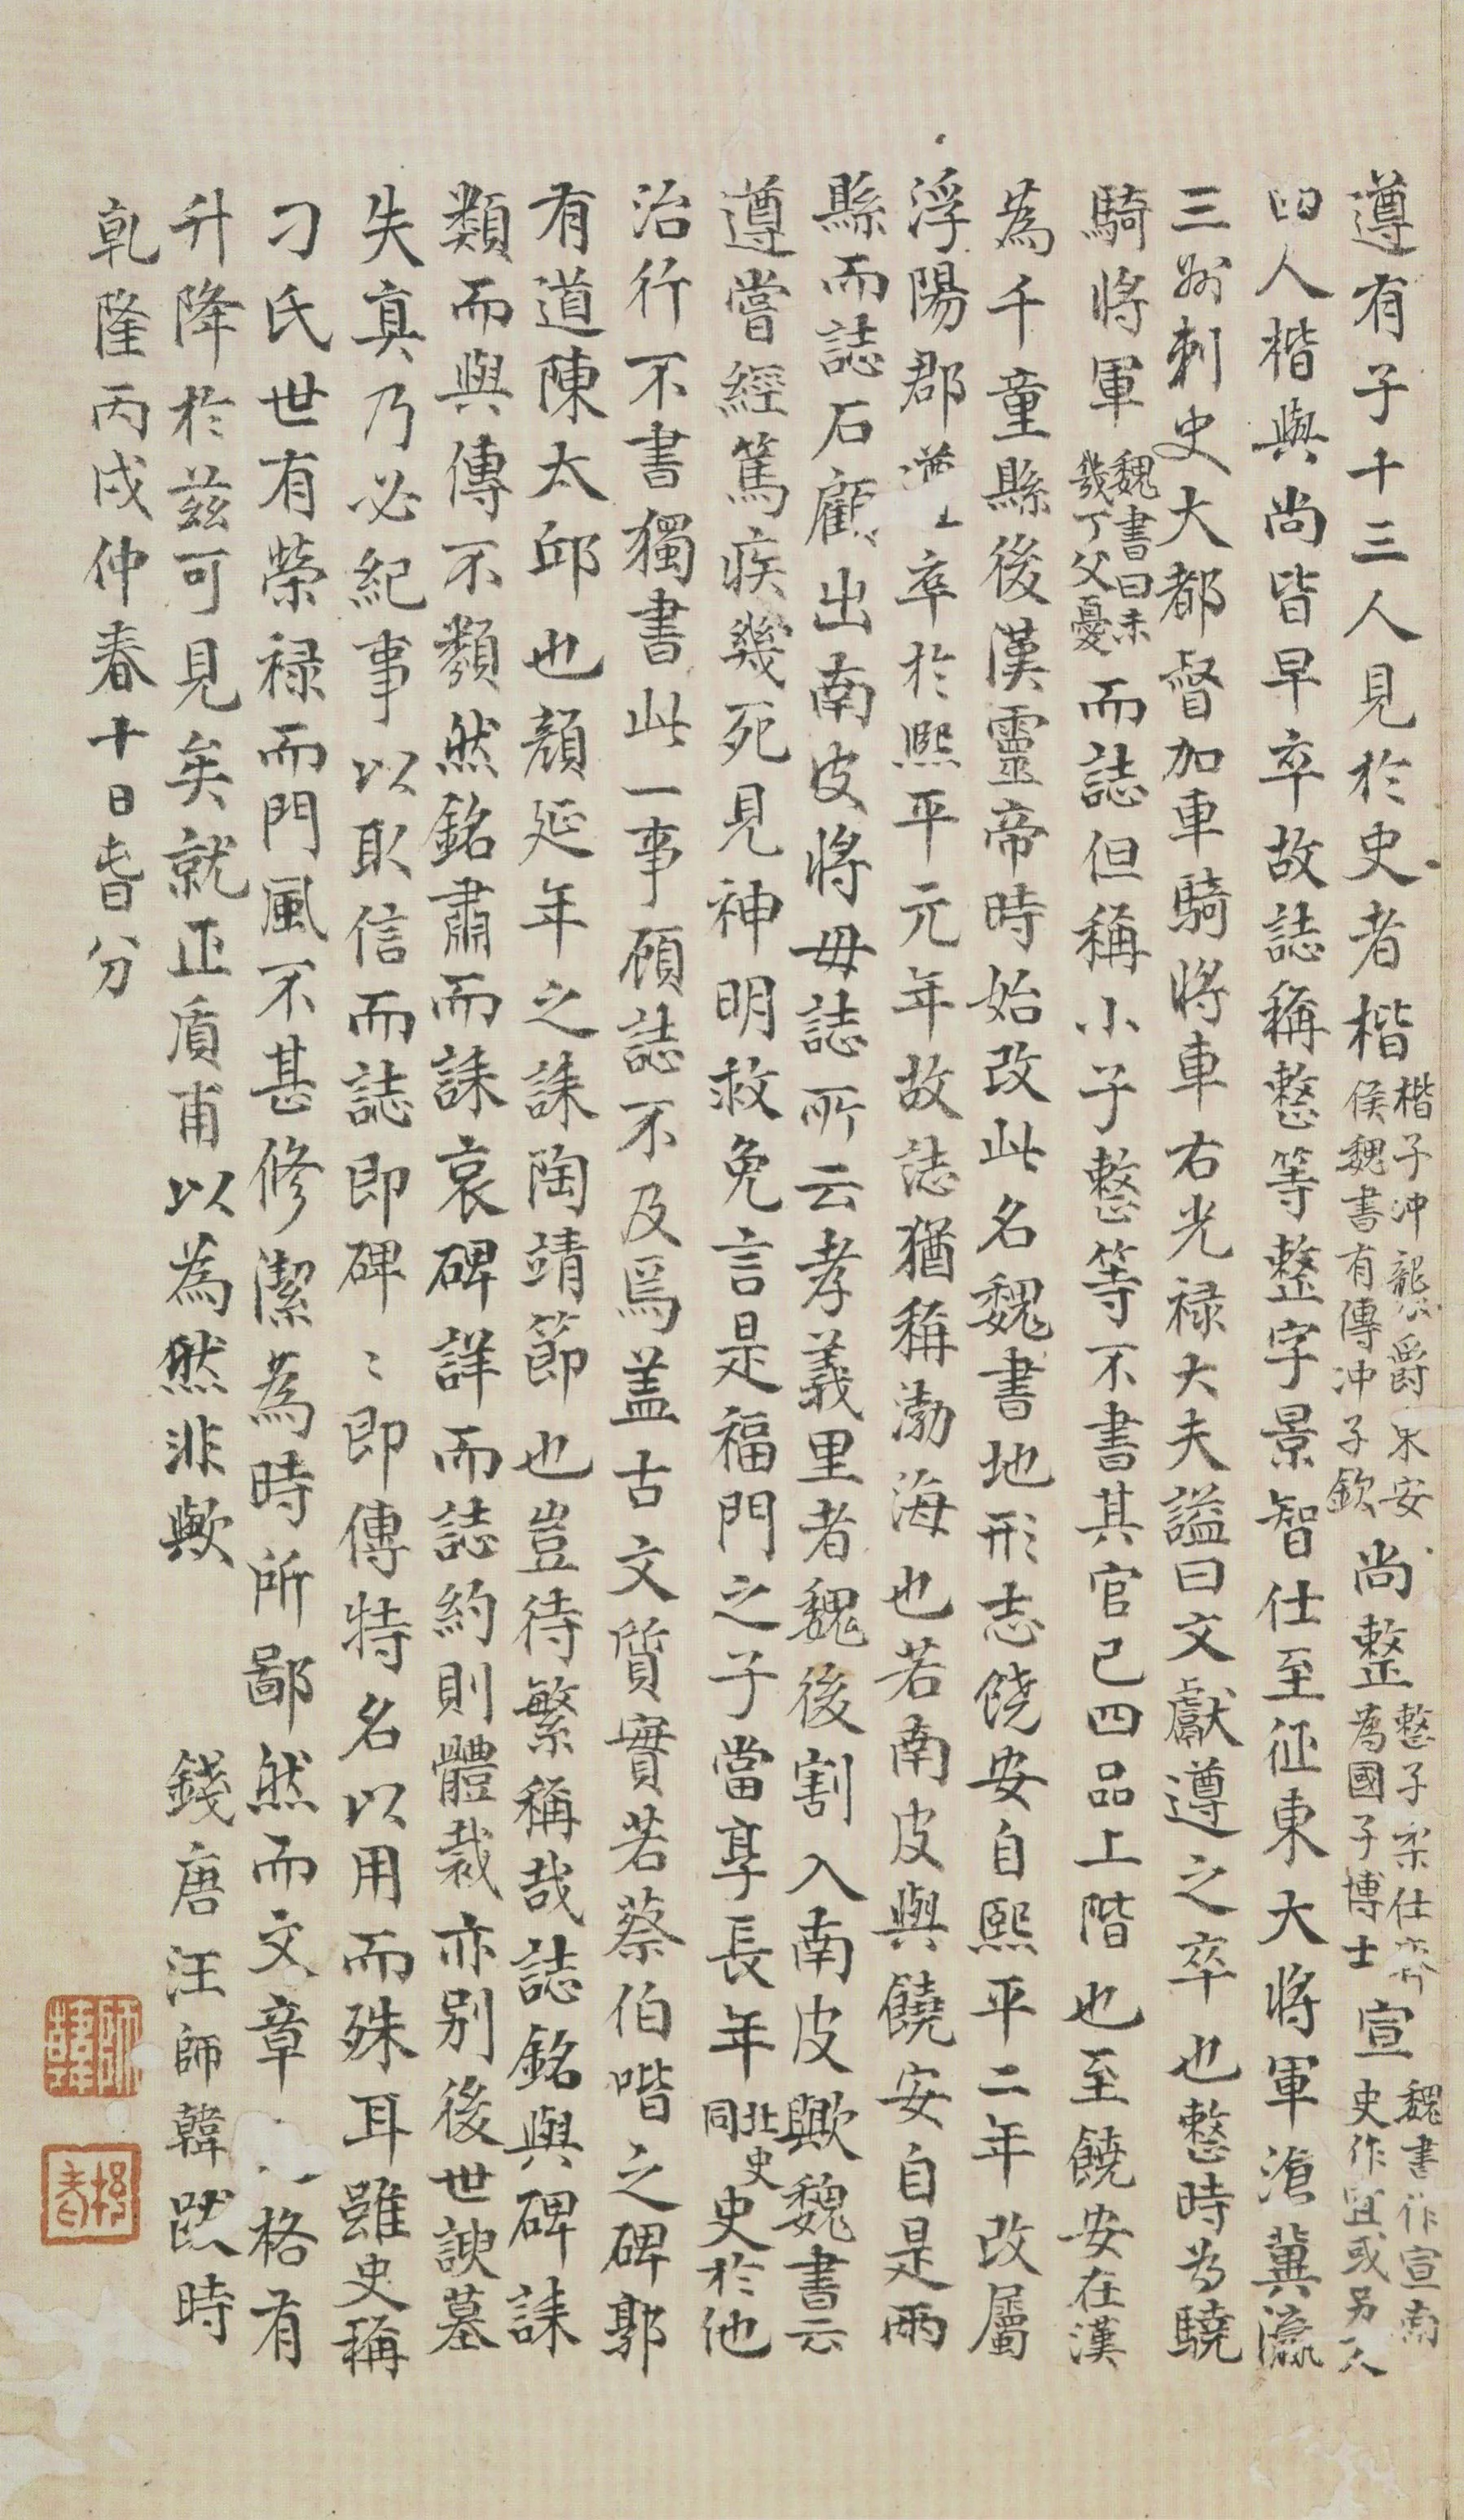 遵有子十三人見於史者楷楷子沖襲爵東安侯魏書有傳沖子欽尚整整子柔仕齊為國子博士宣魏書作宣南史作宜或另一人
四人楷與尚皆早卒故誌稱整等整字景智仕至征東大將軍滄冀瀛
三州刺史大都督加車騎將車右光祿大夫謚曰文獻遵之卒也整時為驍
騎將軍魏書曰未幾丁父憂而誌但稱小子整等不書其官已四品上階也至饒安在漢
為千童縣後漢靈帝時始改此名魏書地形志饒安自熙平二年改屬
浮陽郡遵卒於熙平元年故誌猶稱渤海也若南皮與饒安自是兩
縣而誌石顧出南皮將毋誌所云孝義里者魏後割入南皮歟魏書云
遵嘗經篤疾幾死見神明救免言是福門之子當享長年北史同史於他
治行不書獨書此一事顧誌不及焉盖古文質實若蔡伯喈之碑郭
有道陳太邱也顏延年之誄陶靖節也豈待繁稱哉誌銘與碑誄
類而與傳不類然銘肅而誄哀碑詳而誌約則體裁亦別後世諛墓
失真乃必紀事以取信而誌即碑〻即傳特名以用而殊耳雖史稱
刁氏世有榮祿而門風不甚修潔為時所鄙然而文章格有
升降於茲可見矣就正盾甫以為然非歟 錢唐汪師韓跋時
乾隆丙戌仲春十日旹分